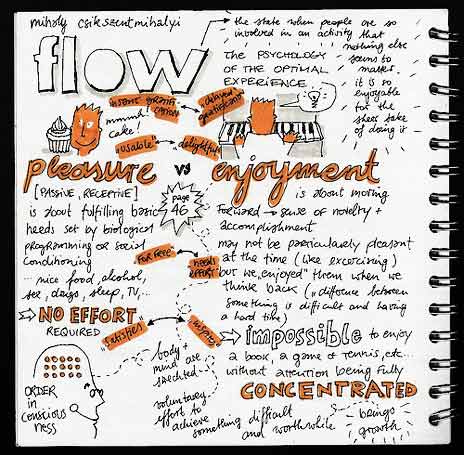 mihaly csikszentmihalyi
flow
the state when people are so
involved in an activity that
nothing else
seems to
matter.
it is so
enjoyable
for the
sheer sake
of doing it
THE PSYCHOLOGY
OF THE OPTIMAL
EXPERIENCE
instant gratifi-
cation
delayed
gratification
mmm!
cake!
"usable"
delightful
pleasure vs enjoyment
[PASSIVE, RECEPTIVE]
is about fulfilling basic
needs set by biological
programming or social
conditioning
... nice food, alcohol,
sex, drugs, sleep, TV,...
→ NO EFFORT
REQUIRED
page
46
FOR FREE
needs
EFFORT
"satisfies"
is about moving
forward → sense of novelty +
accomplishment
may not be particularly pleasant
at the time (like excercising)
but we "enjoyed" them when we
think back ("difference between
something is difficult and having
a hard time)
→ impossible to enjoy
a book, a game of tennis, etc...
without attention being fully
CONCENTRATED
ORDER
in
conscious
ness
body +
mind are
voluntary
effort to
achieve
something difficult
and worthwhile
brings
growth